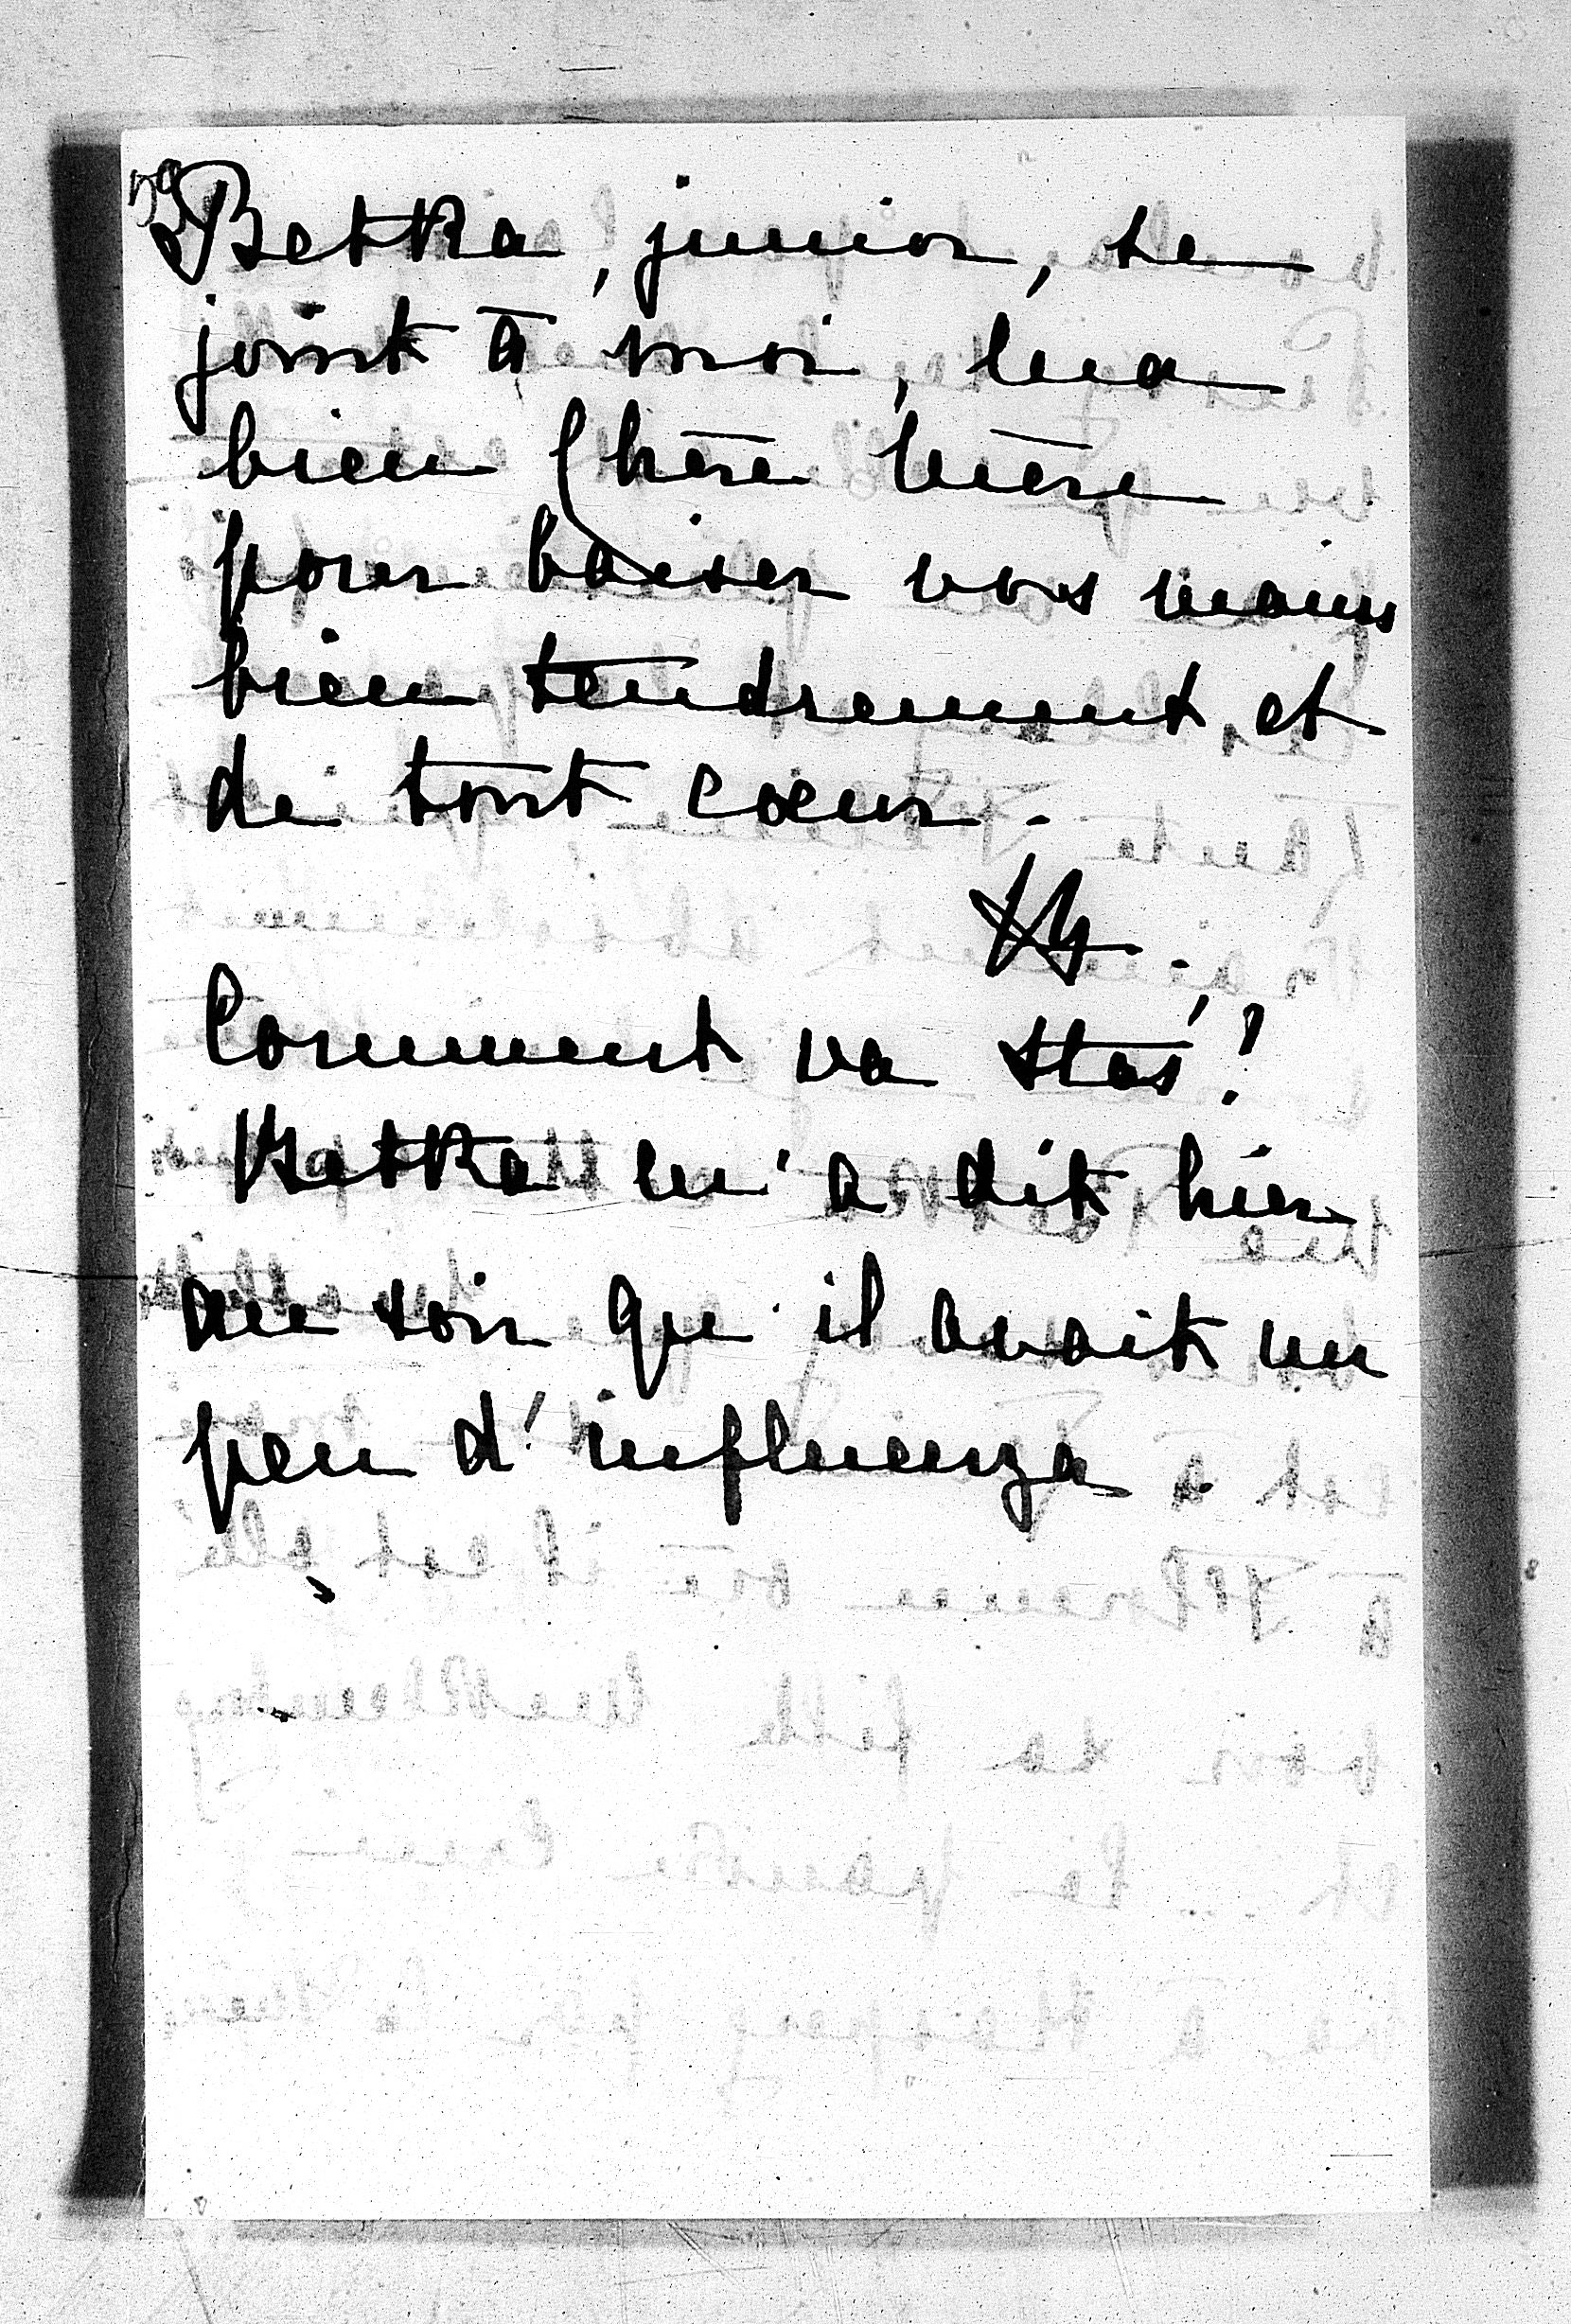 59
Betka, junior, se
joint à moi, ma
bien Chère Mère
pour baiser vos mains
bien tendrement et
de tout cœur.
Comment va Staś?
Betka m'a dit hier
au soir que il avait un
peu d'influenza.